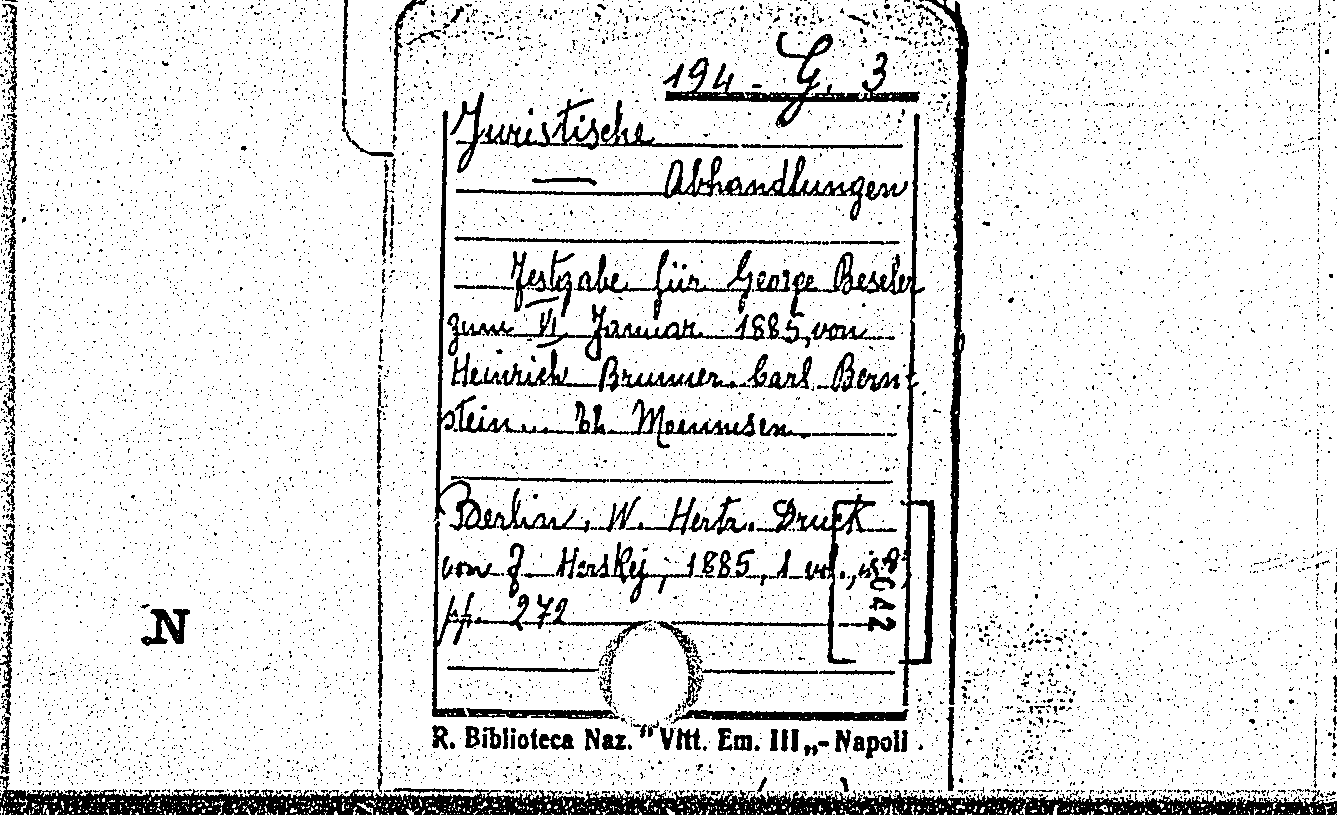 194 - G. 3
Juristische
— Abhandlungen
Festgabe für George Beseler
zum VI Januar 1885, von
Heinrich Brunner. Carl Bern-
stein... Th. Moemmsen.
Berlin. W. Hertz. Druck
von J Herskij, 1885, 1 vol., is 8;
pp. 272
C42
N
R. Biblioteca Naz. "Vitt. Em. III„ - Napoli